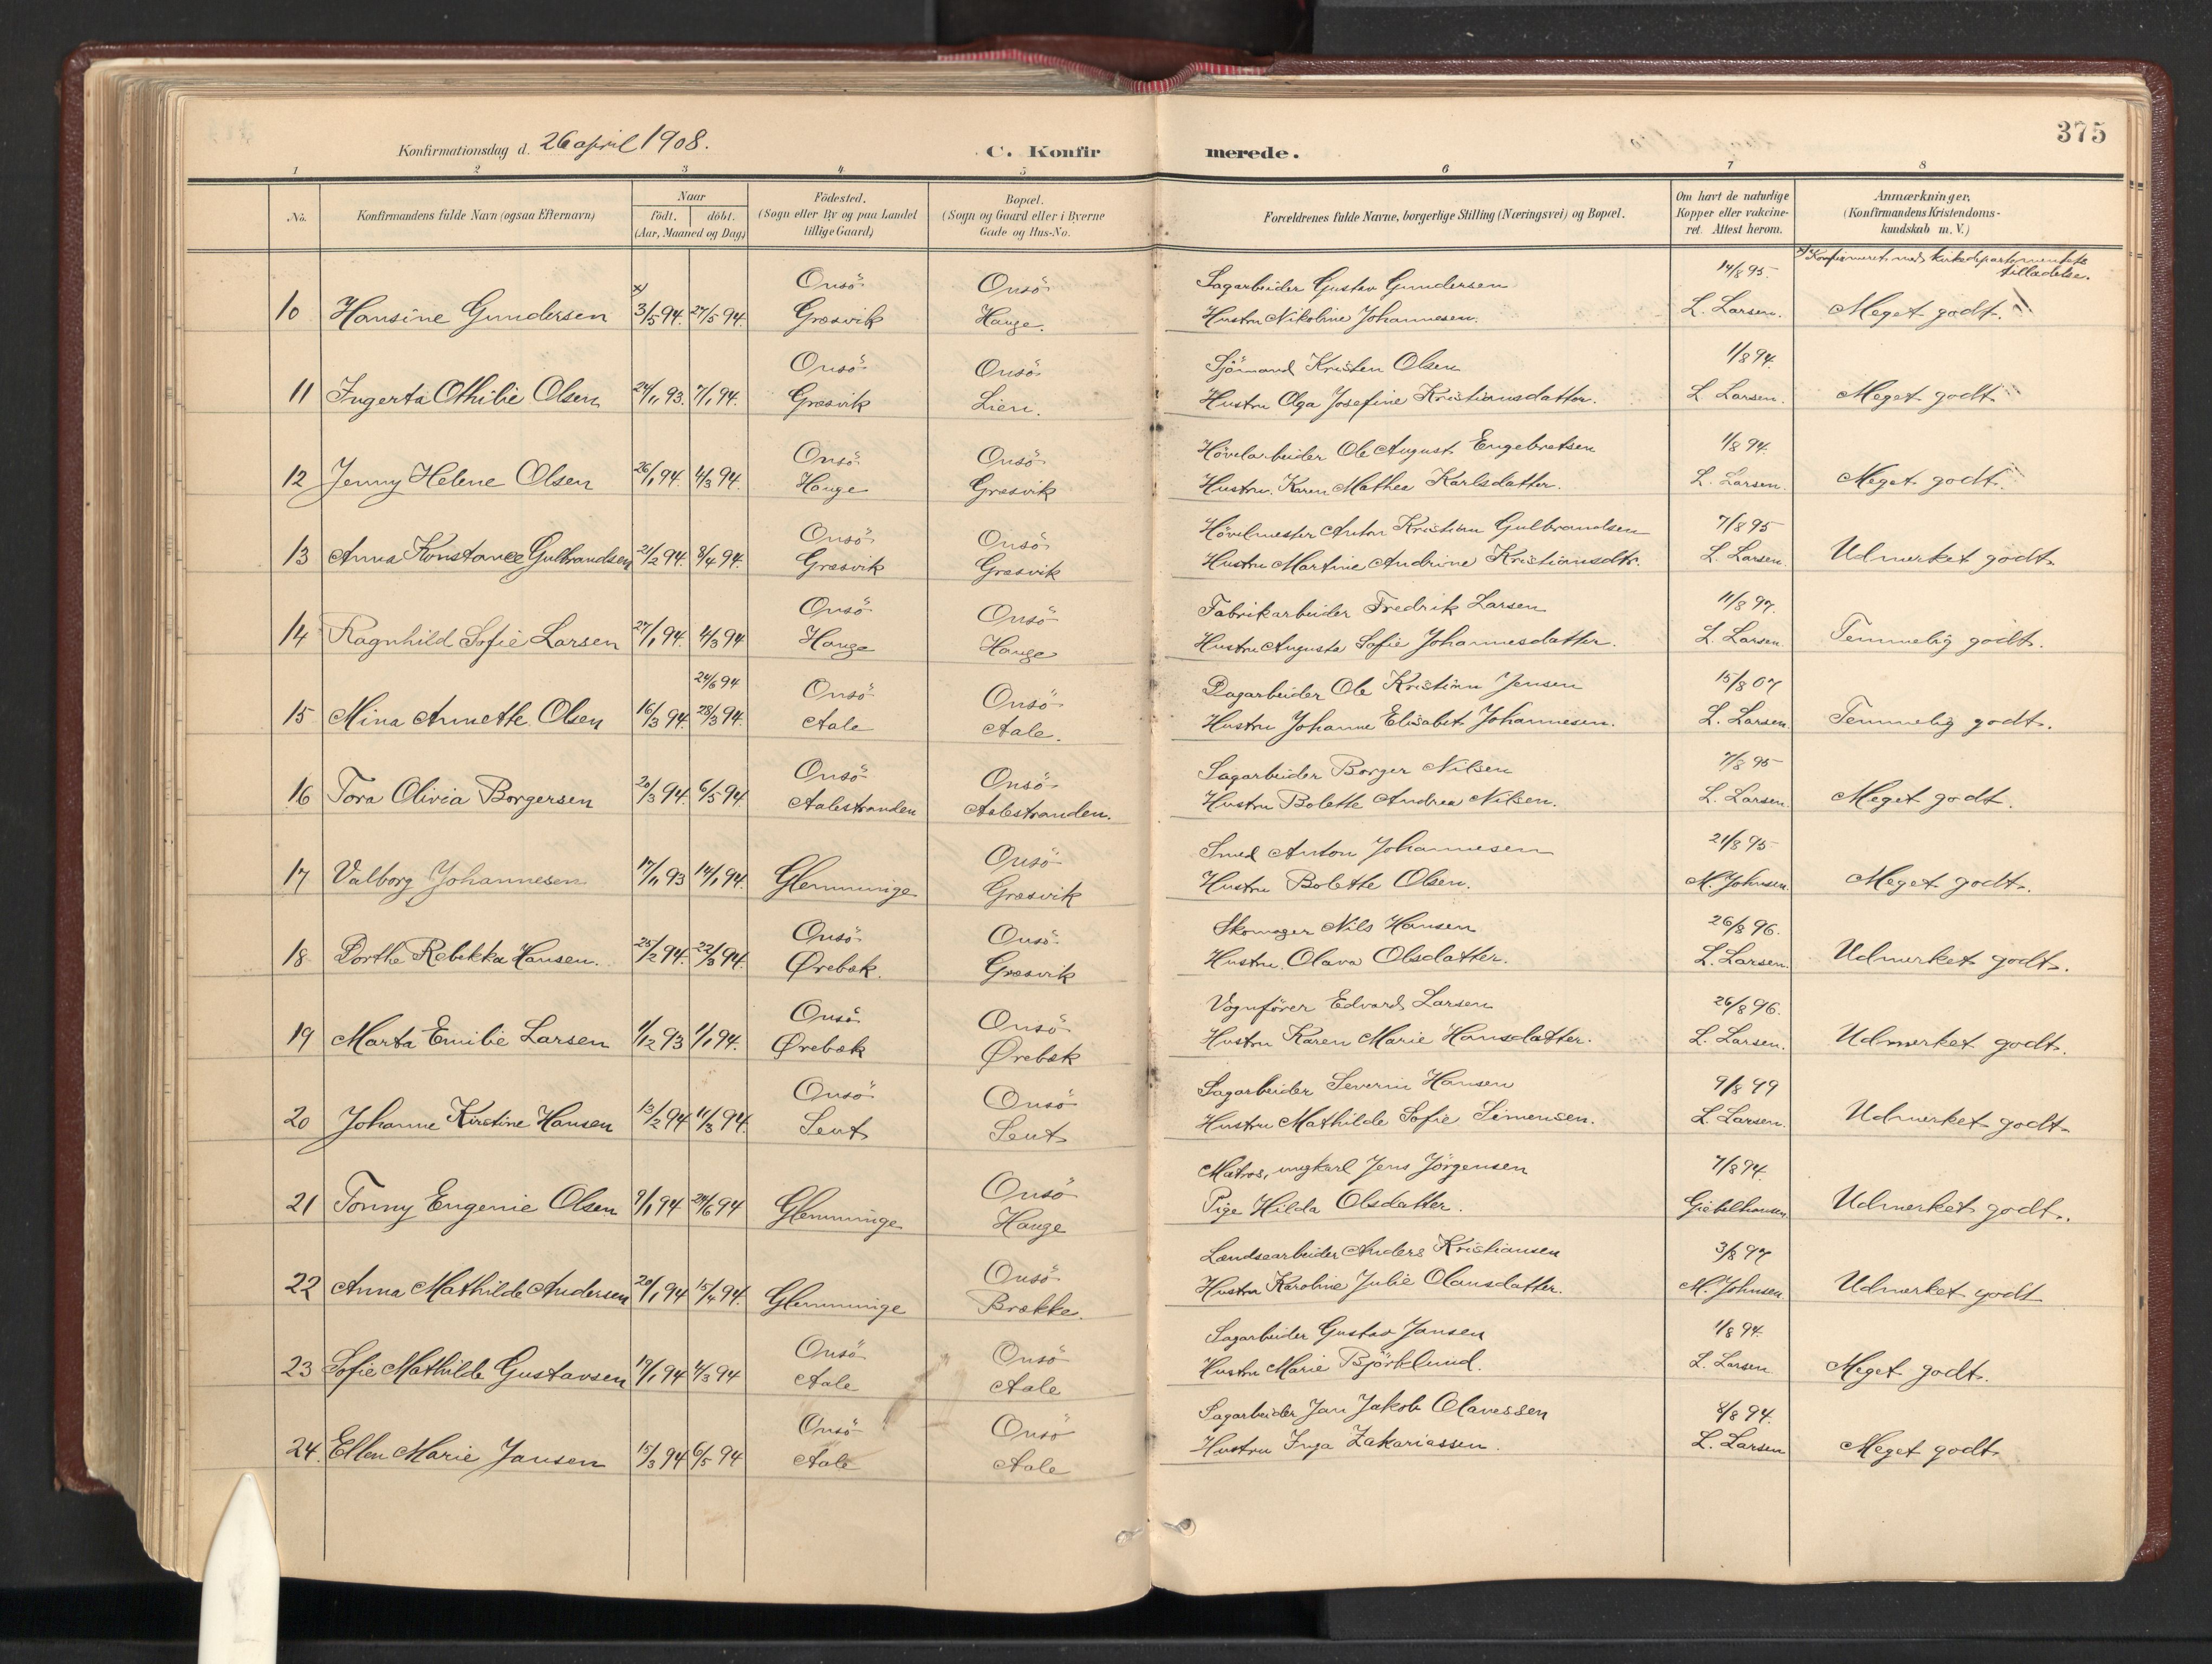 375
Konfirmationsdag d. 26 april 1908.
C. Konfirmerede.
1 2 3 4 5 6 7 8
No.
Konfirmandens fulde Navn (ogsaa Efternavn)
Naar
födt. döbt.
(Aar, Maaned og Dag)
Födested.
(Sogn eller By og paa Landet
tillige Gaard)
Bopæl.
(Sogn og Gaard eller i Byerne
Gade og Hus-No.
Forældrenes fulde Navne, borgerlige Stilling (Næringsvei) og Bopæl.
Om havt de naturlige
Kopper eller vakcine-
ret. Attest herom.
Anmærkninger,
(Konfirmandens Kristendoms-
kundskab m. V.)
x) Konfirmeret med kirkedepartementets
tilladelse.
x) Onsö Onsö Sagarbeider Gustav Gundersen 14/8 95
10 Hansine Gundersen 3/5 94. 27/5 94. Græsvik Hauge. Hustru Nikoline Johannesen. L. Larsen. Meget godt.
Onsö Onsö Sjömand Kristen Olsen 1/8 94.
11 Ingerta Othilie Olsen 24/11 93. 7/1 94. Græsvik Lien. Hustru Olga Josefine Kristiansdatter. L Larsen. Meget godt
Onsö Onsö Hövelarbeider Ole August Engebretsen 1/8 94.
12 Jenny Helene Olsen 26/1 94. 4/3 94. Hauge Græsvik Hustru Karen Mathea Karlsdatter. L. Larsen. Meget godt.
Onsö Onsö Hövelmester Anton Kristian Gulbrandsen 7/8 95
13 Anna Konstance Gulbrandsen 21/2 94. 8/4 94. Græsvik Græsvik Hustru Martine Andrine Kristiansdtr. L. Larsen. Udmerket godt.
Onsö Onsö Fabrikarbeider Fredrik Larsen 11/8 97.
14 Ragnhild Sofie Larsen 27/1 94. 4/3 94 Hauge Hauge Hustru Augusta Sofie Johannesdatter. L. Larsen. Temmelig godt.
24/6 94 Onsö Onsö Dagarbeider Ole Kristian Jensen 15/8 07
15 Mina Annette Olsen 16/3 94. 28/3 94. Aale Aale. Hustru Johanne Elisabet Johannesen. L. Larsen. Temmelig godt.
Onsö Onsö Sagarbeider Borger Nilsen 7/8 95
16 Tora Olivia Borgersen 20/3 94. 6/5 94. Aalestranden Aalestranden. Hustru Bolette Andrea Nilsen. L. Larsen. Meget godt.
Onsö Smed Anton Johannesen 21/8 95
17 Valborg Johannesen 17/11 93 14/1 94. Glemminge Græsvik Hustru Bolette Olsen. M. Johnsen. Meget godt.
Onsö Onsö Skomager Nils Hansen 26/8 96.
18 Dorthe Rebekka Hansen. 25/2 94. 22/3 94. Ørebæk. Græsvik Hustru Olava Olsdatter. L. Larsen. Udmerket godt.
Onsö Onsö Vognförer Edvard Larsen 26/8 96.
19 Marta Emilie Larsen 1/12 93 1/1 94. Ørebæk Ørebæk Hustru Karen Marie Hansdatter. L. Larsen. Udmerket godt.
Onsö Onsö Sagarbeider Severin Hansen 9/8 99
20 Johanne Kirstine Hansen 13/2 94 11/3 94. Seut Seut Hustru Mathilde Sofie Simensen. L. Larsen. Udmerket godt.
Onsö Matros, ungkarl Jens Jörgensen 7/8 94.
21 Tonny Eugenie Olsen 9/1 94 24/6 94 Glemminge Hauge Pige Hilda Olsdatter. Giebelhausen. Udmerket godt.
Onsö Lændsearbeider Anders Kristiansen 3/8 97
22 Anna Mathilde Andersen 20/1 94 15/4 94. Glemminge Brække. Hustru Karoline Julie Olausdatter. M. Johnsen. Udmerket godt
Onsö Onsö Sagarbeider Gustav Jansen 1/8 94.
23 Sofie Mathilde Gustavsen 19/1 94 4/3 94 Aale Aale Hustru Marie Björklund. L. Larsen Meget godt.
Onsö Onsö Sagarbeider Jan Jakob Olavessen 8/8 94.
24. Ellen Marie Jansen 15/3 94 6/5 94 Aale Aale Hustru Inga Zakariassen. L. Larsen Meget godt.